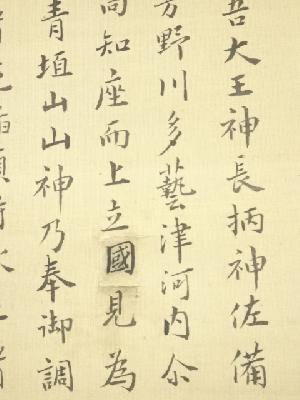 吾大王神長柄神佐備
芳野川多藝津河内尒
高知座而上立國見為
青垣山山神乃奉御調